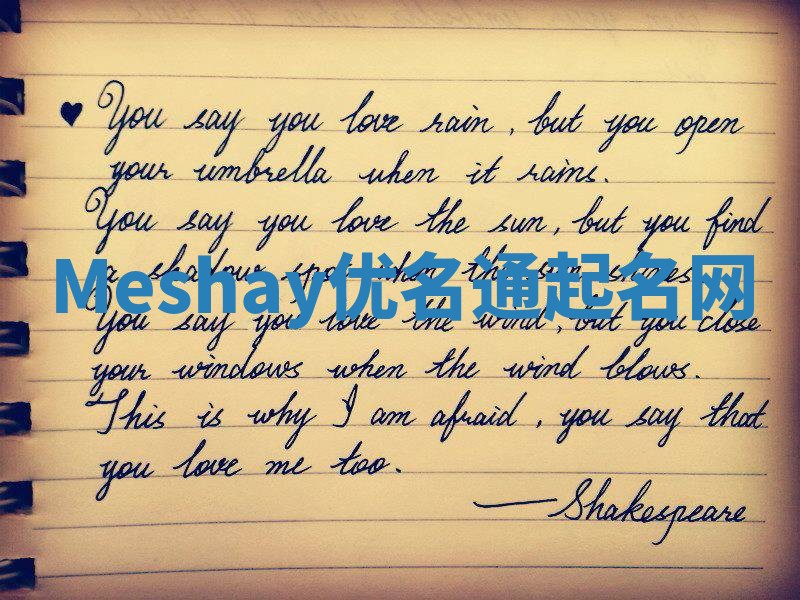 ♥ You say you love rain, but you open
your umbrella when it rains.
You say you love the sun, but you find
a shadow spot when the sun shines.
Meshay优名通起名网
You say you love the wind, but you close
your windows when the wind blows.
This is why I am afraid, you say that
you love me too.
— Shakespeare